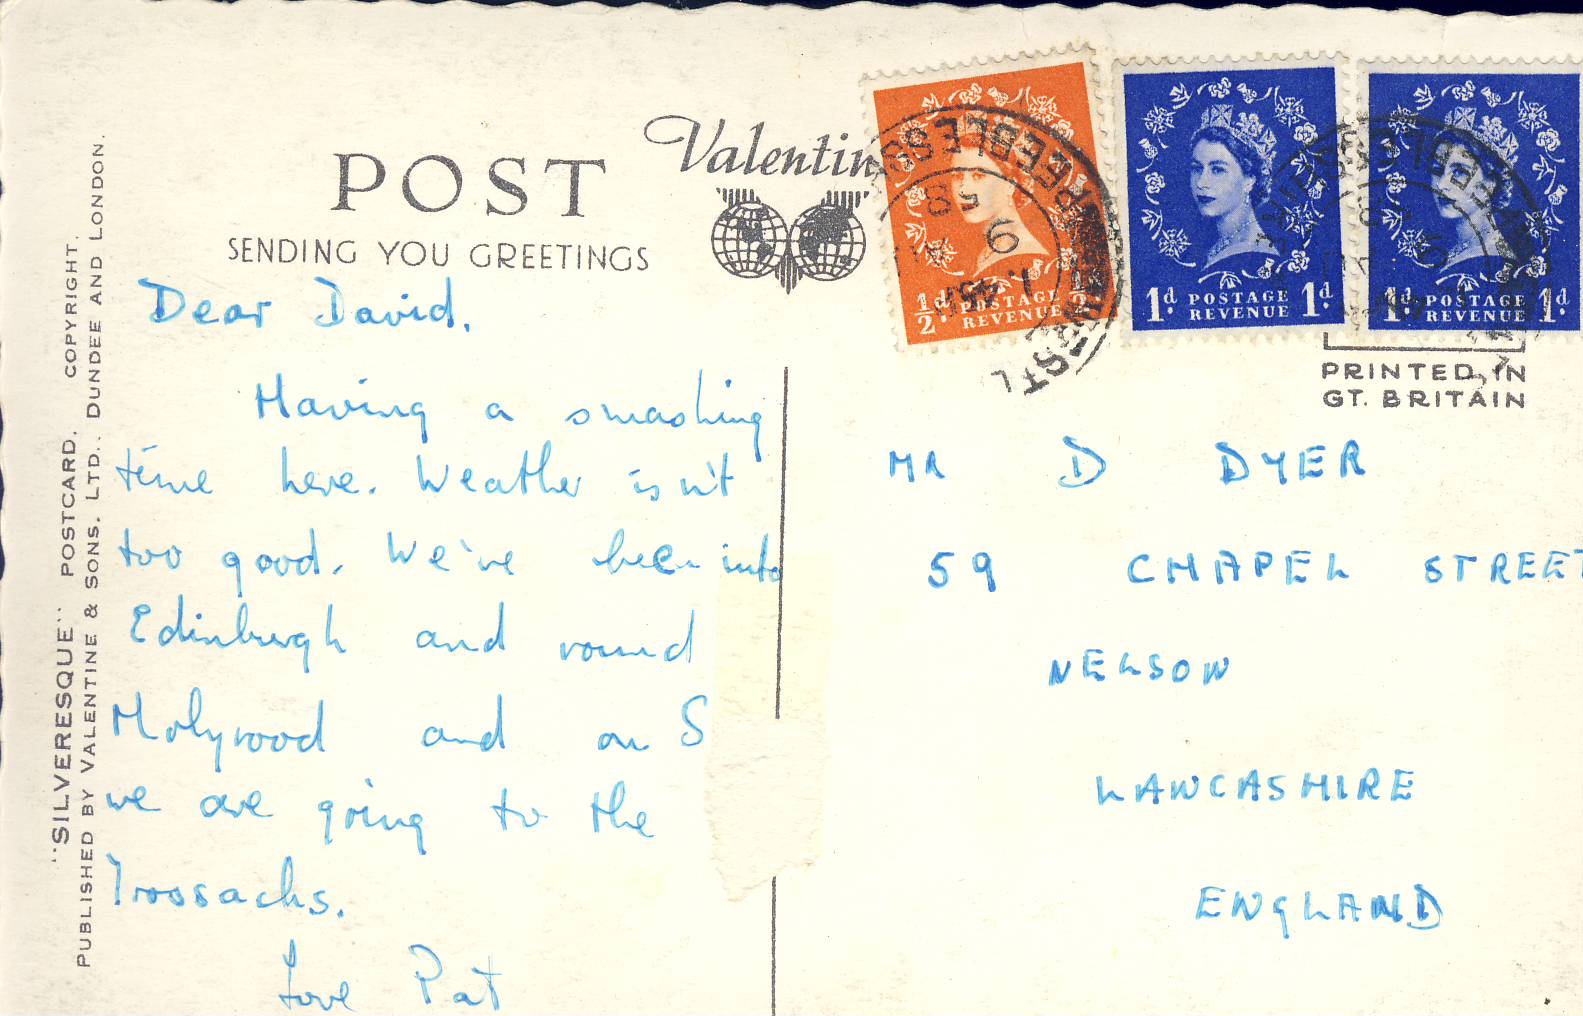 POST
SENDING YOU GREETINGS
Valentin
"SILVERESQUE" POSTCARD. COPYRIGHT.
PUBLISHED BY VALENTINE & SONS, LTD., DUNDEE AND LONDON.
Dear David,
Having a smashing
time here. Weather isn't
too good. We've been into
Edinburgh and round
Holyrood and on S
we are going to the
Trossachs.
Love Pat
½d POSTAGE ½
REVENUE
1d POSTAGE 1d
REVENUE
1d POSTAGE 1d
REVENUE
PEEBLESS
58
9
PRINTED IN
GT. BRITAIN
MR D DYER
59 CHAPEL STREET
NELSON
LANCASHIRE
ENGLAND